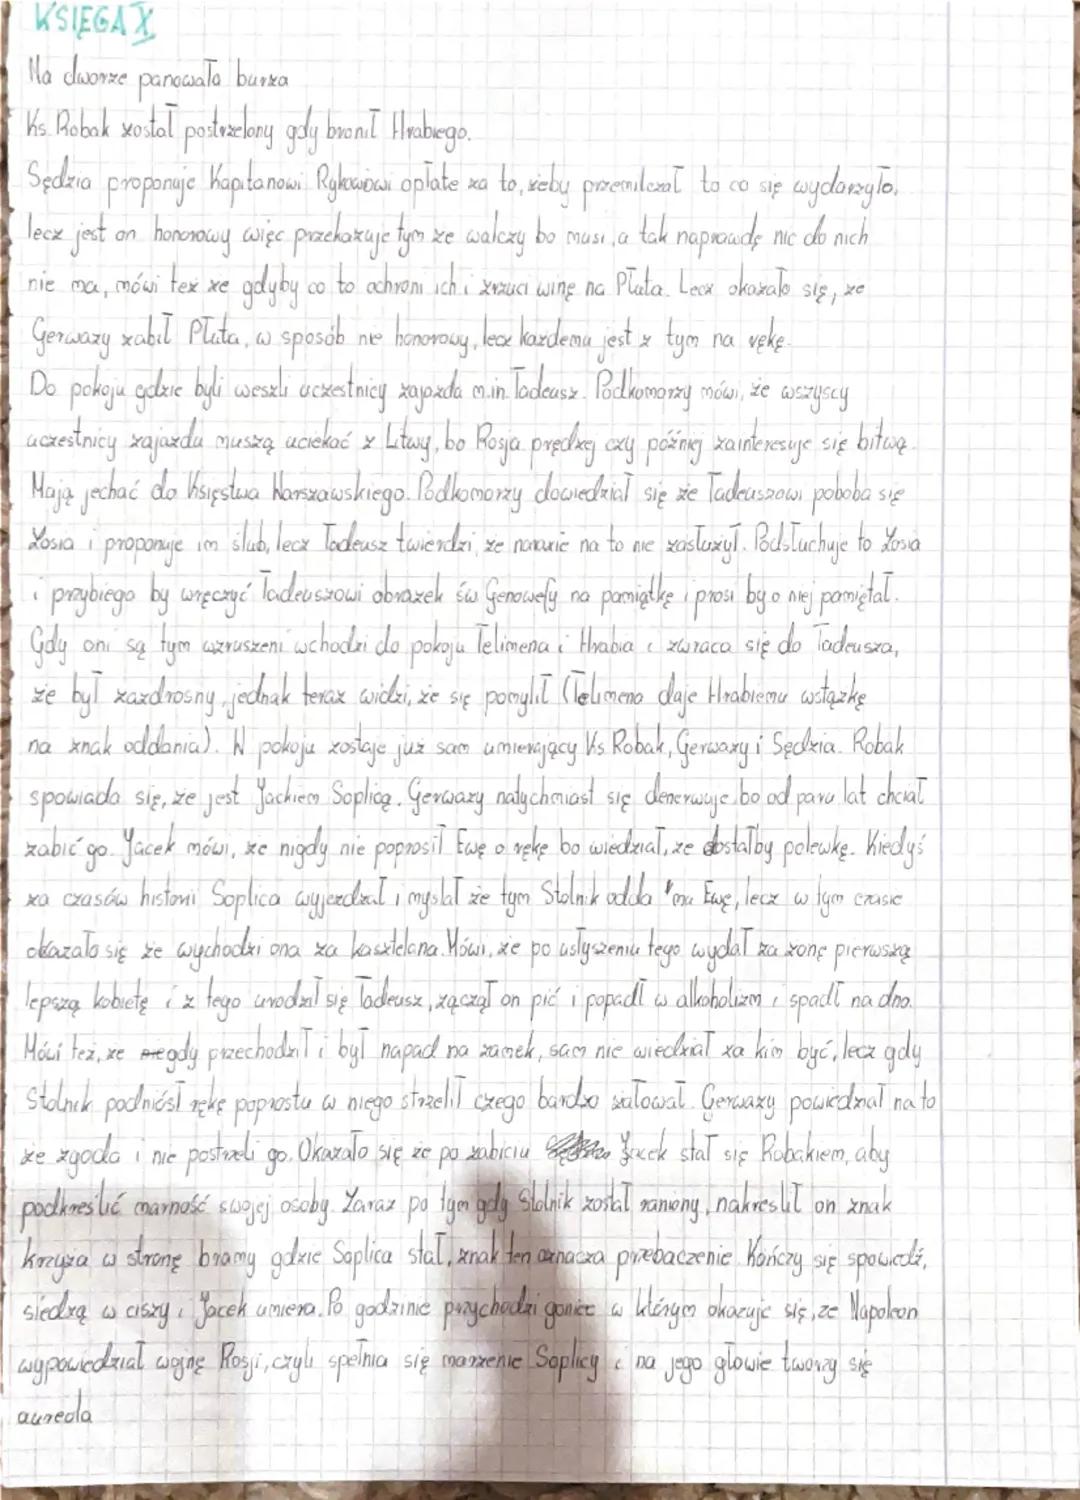 KSIĘGA X
Na dworze panowała burza
Ks. Robak został postrzelony gdy bronił Hrabiego.
Sędzia proponuje Kapitanowi Rykowowi opłate za to, żeby przemilczał to co się wydarzyło,
lecz jest on honorowy więc przekazuje tym że walczy bo musi, a tak naprawdę nic do nich
nie ma, mówi też że gdyby co to ochroni ich i zrzuci winę na Pluta. Lecz okazało się, że
Gerwazy zabił Pluta, w sposób nie honorowy, lecz każdemu jest z tym na rękę.
Do pokoju gdzie byli weszli uczestnicy zajazdu m.in. Tadeusz. Podkomorzy mówi, że wszyscy
uczestnicy zajazdu muszą uciekać z Litwy, bo Rosja prędzej czy później zainteresuje się bitwą.
Mają jechać do Księstwa Warszawskiego. Podkomorzy dowiedział się że Tadeuszowi poboba się
Zosia i proponuje im ślub, lecz Tadeusz twierdzi, że narazie na to nie zasłużył. Podsłuchuje to Zosia
i przybiega by wręczyć Tadeuszowi obrazek św Genowefy na pamiątkę i prosi by o niej pamiętał.
Gdy oni są tym wzruszeni wchodzi do pokoju Telimena i Hrabia i zwraca się do Tadeusza,
że był zazdrosny, jednak teraz widzi, że się pomylił (Telimena daje Hrabiemu wstążkę
na znak oddania). W pokoju zostaje już sam umierający Ks Robak, Gerwazy i Sędzia. Robak
spowiada się, że jest Jackiem Soplicą. Gerwazy natychmiast się denerwuje bo od paru lat chciał
zabić go. Jacek mówi, że nigdy nie poprosił Ewę o rękę bo wiedział, że dostałby polewkę. Kiedyś
za czasów historii Soplica wyjerdzał i myslał że tym Stolnik odda mu Ewę, lecz w tym czasie
okazało się że wychodzi ona za kasztelana. Mówi, że po usłyszeniu tego wydał za żonę pierwszą
lepszą kobietę i z tego urodził się Tadeusz, zączął on pić i popadł w alkoholizm i spadł na dno.
Mówi też, że gdy przechodził i był napad na zamek, sam nie wiedział za kim być, lecz gdy
Stolnik podniósł rękę poprostu w niego strzelił czego bardzo żałował. Gerwazy powiedział na to
że zgoda i nie postrzeli go. Okazało się że po zabiciu Jacek stał się Robakiem, aby
podkreślić marność swojej osoby. Zaraz po tym gdy Stolnik został raniony, nakreslił on znak
krzyża w stronę bramy gdzie Soplica stał, znak ten oznacza przebaczenie. Kończy się spowiedź,
siedzą w ciszy i Jacek umiera. Po godzinie przychodzi goniec w którym okazuje się, że Napoleon
wypowiedział wojnę Rosji, czyli spełnia się marzenie Soplicy i na jego głowie tworzy się
aureola